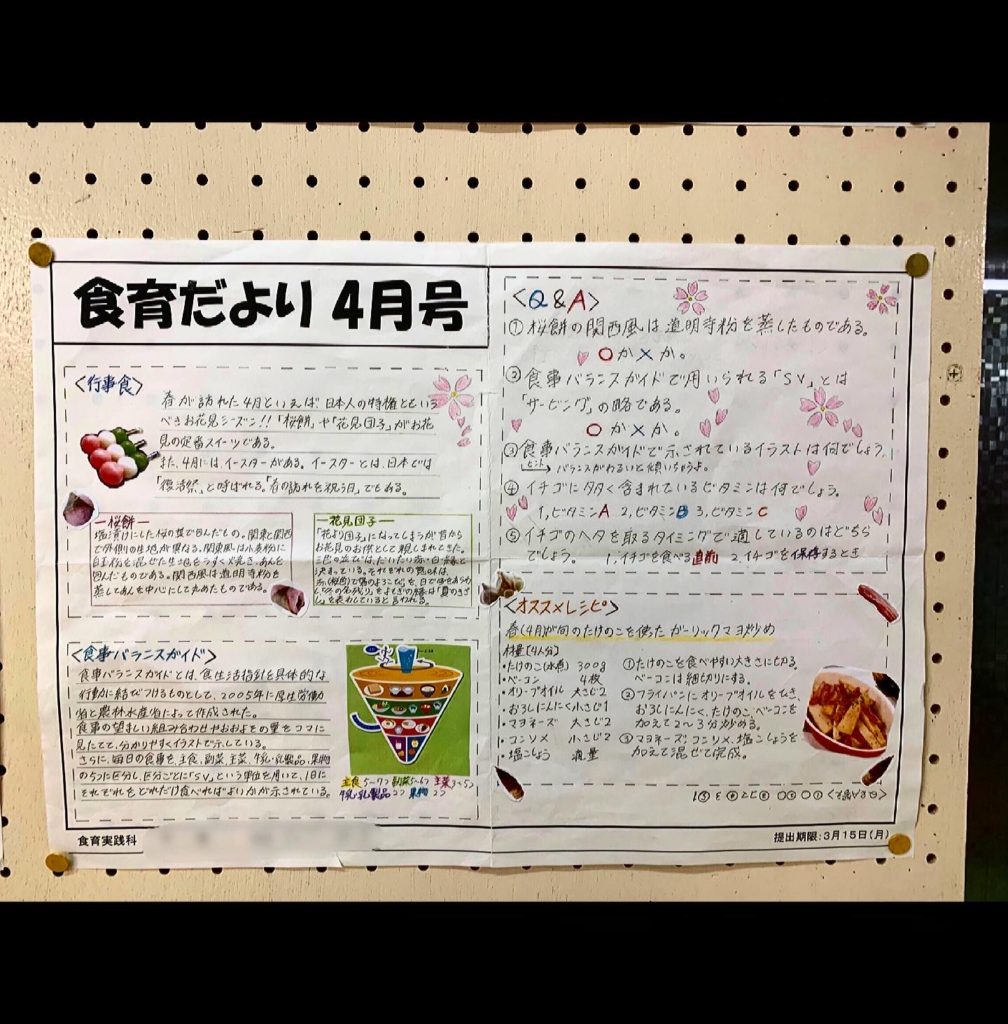 食育だより 4月号
<行事食>
春が訪れた4月といえば、日本人の特権ともいう
べきお花見シーズン!!「桜餅」や「花見団子」がお花
見の定番スイーツである。
また、4月には、イースターがある。イースターとは、日本では
「復活祭」と呼ばれる。「春の訪れを祝う日」でもある。
桜餅
塩漬けにした桜の葉で包んだもの。関東と関西
で外側の生地が異なる。関東風は小麦粉に
白玉粉を混ぜた生地をうすく焼き、あんを
包んだものである。関西風は道明寺粉を
蒸してあんを中心にして丸めたものである。
花見団子
「花より団子」になってしまうが昔から
お花見のお供として親しまれてきた。
三色の並びは、だいたい赤・白・緑と
決まっている。それぞれの意味は、
<食事バランスガイド>
食事バランスガイドとは、食生活指針を具体的な
行動に結びつけるものとして、2005年に厚生労働
省と農林水産省によって作成された。
食事の望ましい組み合わせやおおよその量をコマに
見たてて、分かりやすくイラストで示している。
さらに、毎日の食事を、主食、副菜、主菜、牛乳・乳製品、果物
の5つに区分し、区分ごとに「SV」という単位を用いて、1日に
それぞれをどれだけ食べればよいかが示されている。
主食5〜7つ 副菜5〜6つ 主菜3〜5つ
牛乳・乳製品2つ 果物2つ
食育実践科
<Q&A>
① 桜餅の関西風は道明寺粉を蒸したものである。
○か×か。
② 食事バランスガイドで用いられる「SV」とは
「サービング」の略である。
○か×か。
③ 食事バランスガイドで示されているイラストは何でしょう。
ヒント バランスがわるいと傾いちゃうよ。
④ イチゴに多く含まれているビタミンは何でしょう。
1,ビタミンA 2,ビタミンB 3,ビタミンC
⑤ イチゴのヘタを取るタイミングで適しているのはどちら
でしょう。 1.イチゴを食べる直前 2.イチゴを保存するとき
<オススメレシピ>
春(4月)が旬のたけのこを使った ガーリックマヨ炒め
材量[4人分]
・たけのこ(水煮) 300g
・ベーコン 4枚
・オリーブオイル 大さじ2
・おろしにんにく 小さじ1
・マヨネーズ 大さじ2
・コンソメ 小さじ2
・塩こしょう 適量
①たけのこを食べやすい大きさに切る。
ベーコンは細切りにする。
②フライパンにオリーブオイルをひき、
おろしにんにく、たけのこ、ベーコンを
加えて2〜3分炒める。
③マヨネーズ、コンソメ、塩こしょうを
加えて混ぜて完成。
提出期限:3月15日(月)